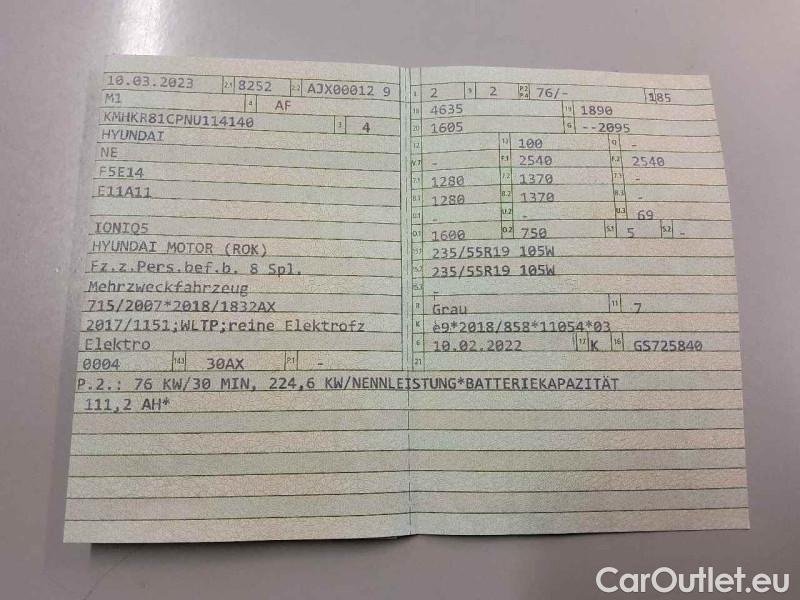 10.03.2023 2.1 8252 2.2 AJX00012 9
M1 4 AF
KMHKR81CPNU114140 3 4
HYUNDAI
NE
F5E14
E11A11
IONIQ5
HYUNDAI MOTOR (ROK)
Fz.z.Pers.bef.b. 8 Spl.
Mehrzweckfahrzeug
715/2007*2018/1832AX
2017/1151;WLTP;reine Elektrofz
Elektro
0004 14.3 30AX P.1 -
2 9 2 P.2 P.4 76/- 185
18 4635 19 1890
20 1605 G --2095
12 - 13 100 Q -
V.7 - F.1 2540 F.2 2540
7.1 1280 7.2 1370 -
8.1 1280 8.2 1370 8.3 -
U.1 - U.2 - U.3 69
O.1 1600 O.2 750 S.1 5 S.2 -
15.1 235/55R19 105W
15.2 235/55R19 105W
15.3 -
R Grau 11 7
K e9*2018/858*11054*03
6 10.02.2022 17 K 16 GS725840
21
P.2.: 76 KW/30 MIN, 224,6 KW/NENNLEISTUNG*BATTERIEKAPAZITÄT
111,2 AH*
CarOutlet.eu